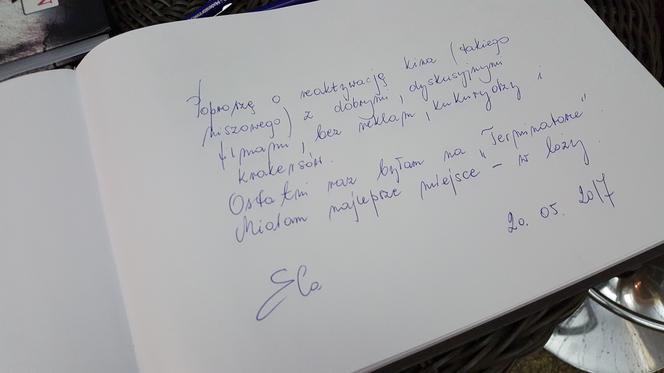 Poproszę o reaktywację kina (takiego
niszowego) z dobrymi, dyskusyjnymi
filmami, bez reklam, kukurydzy i
krakersów.
Ostatni raz byłam na "Terminatorze".
Miałam najlepsze miejsce - w loży.
20.05.2017
Ela